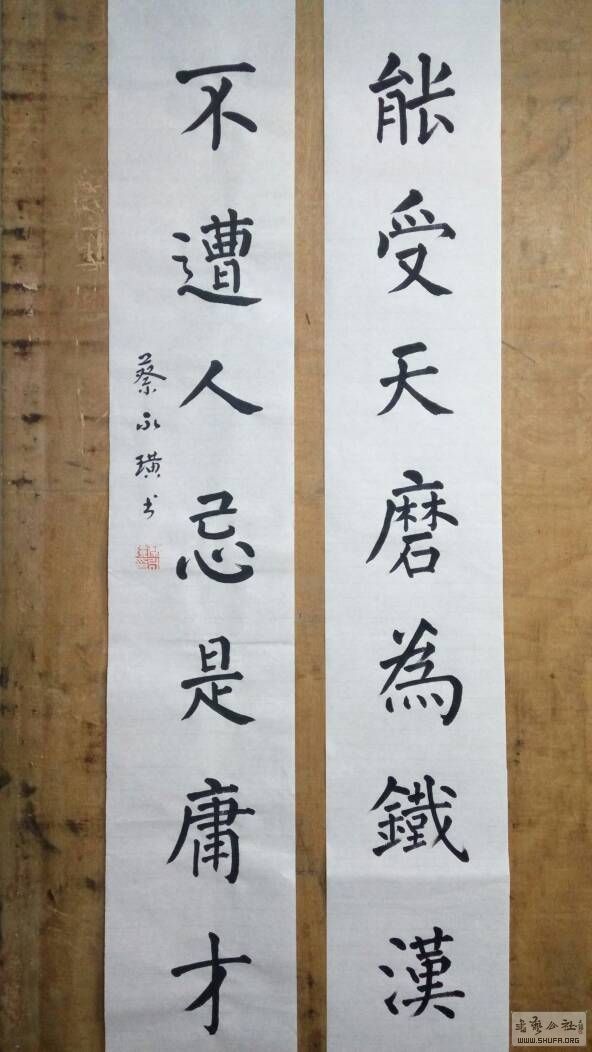 能受天磨為鐵漢
不遭人忌是庸才
蔡永璜书
WWW.SHUFA.ORG